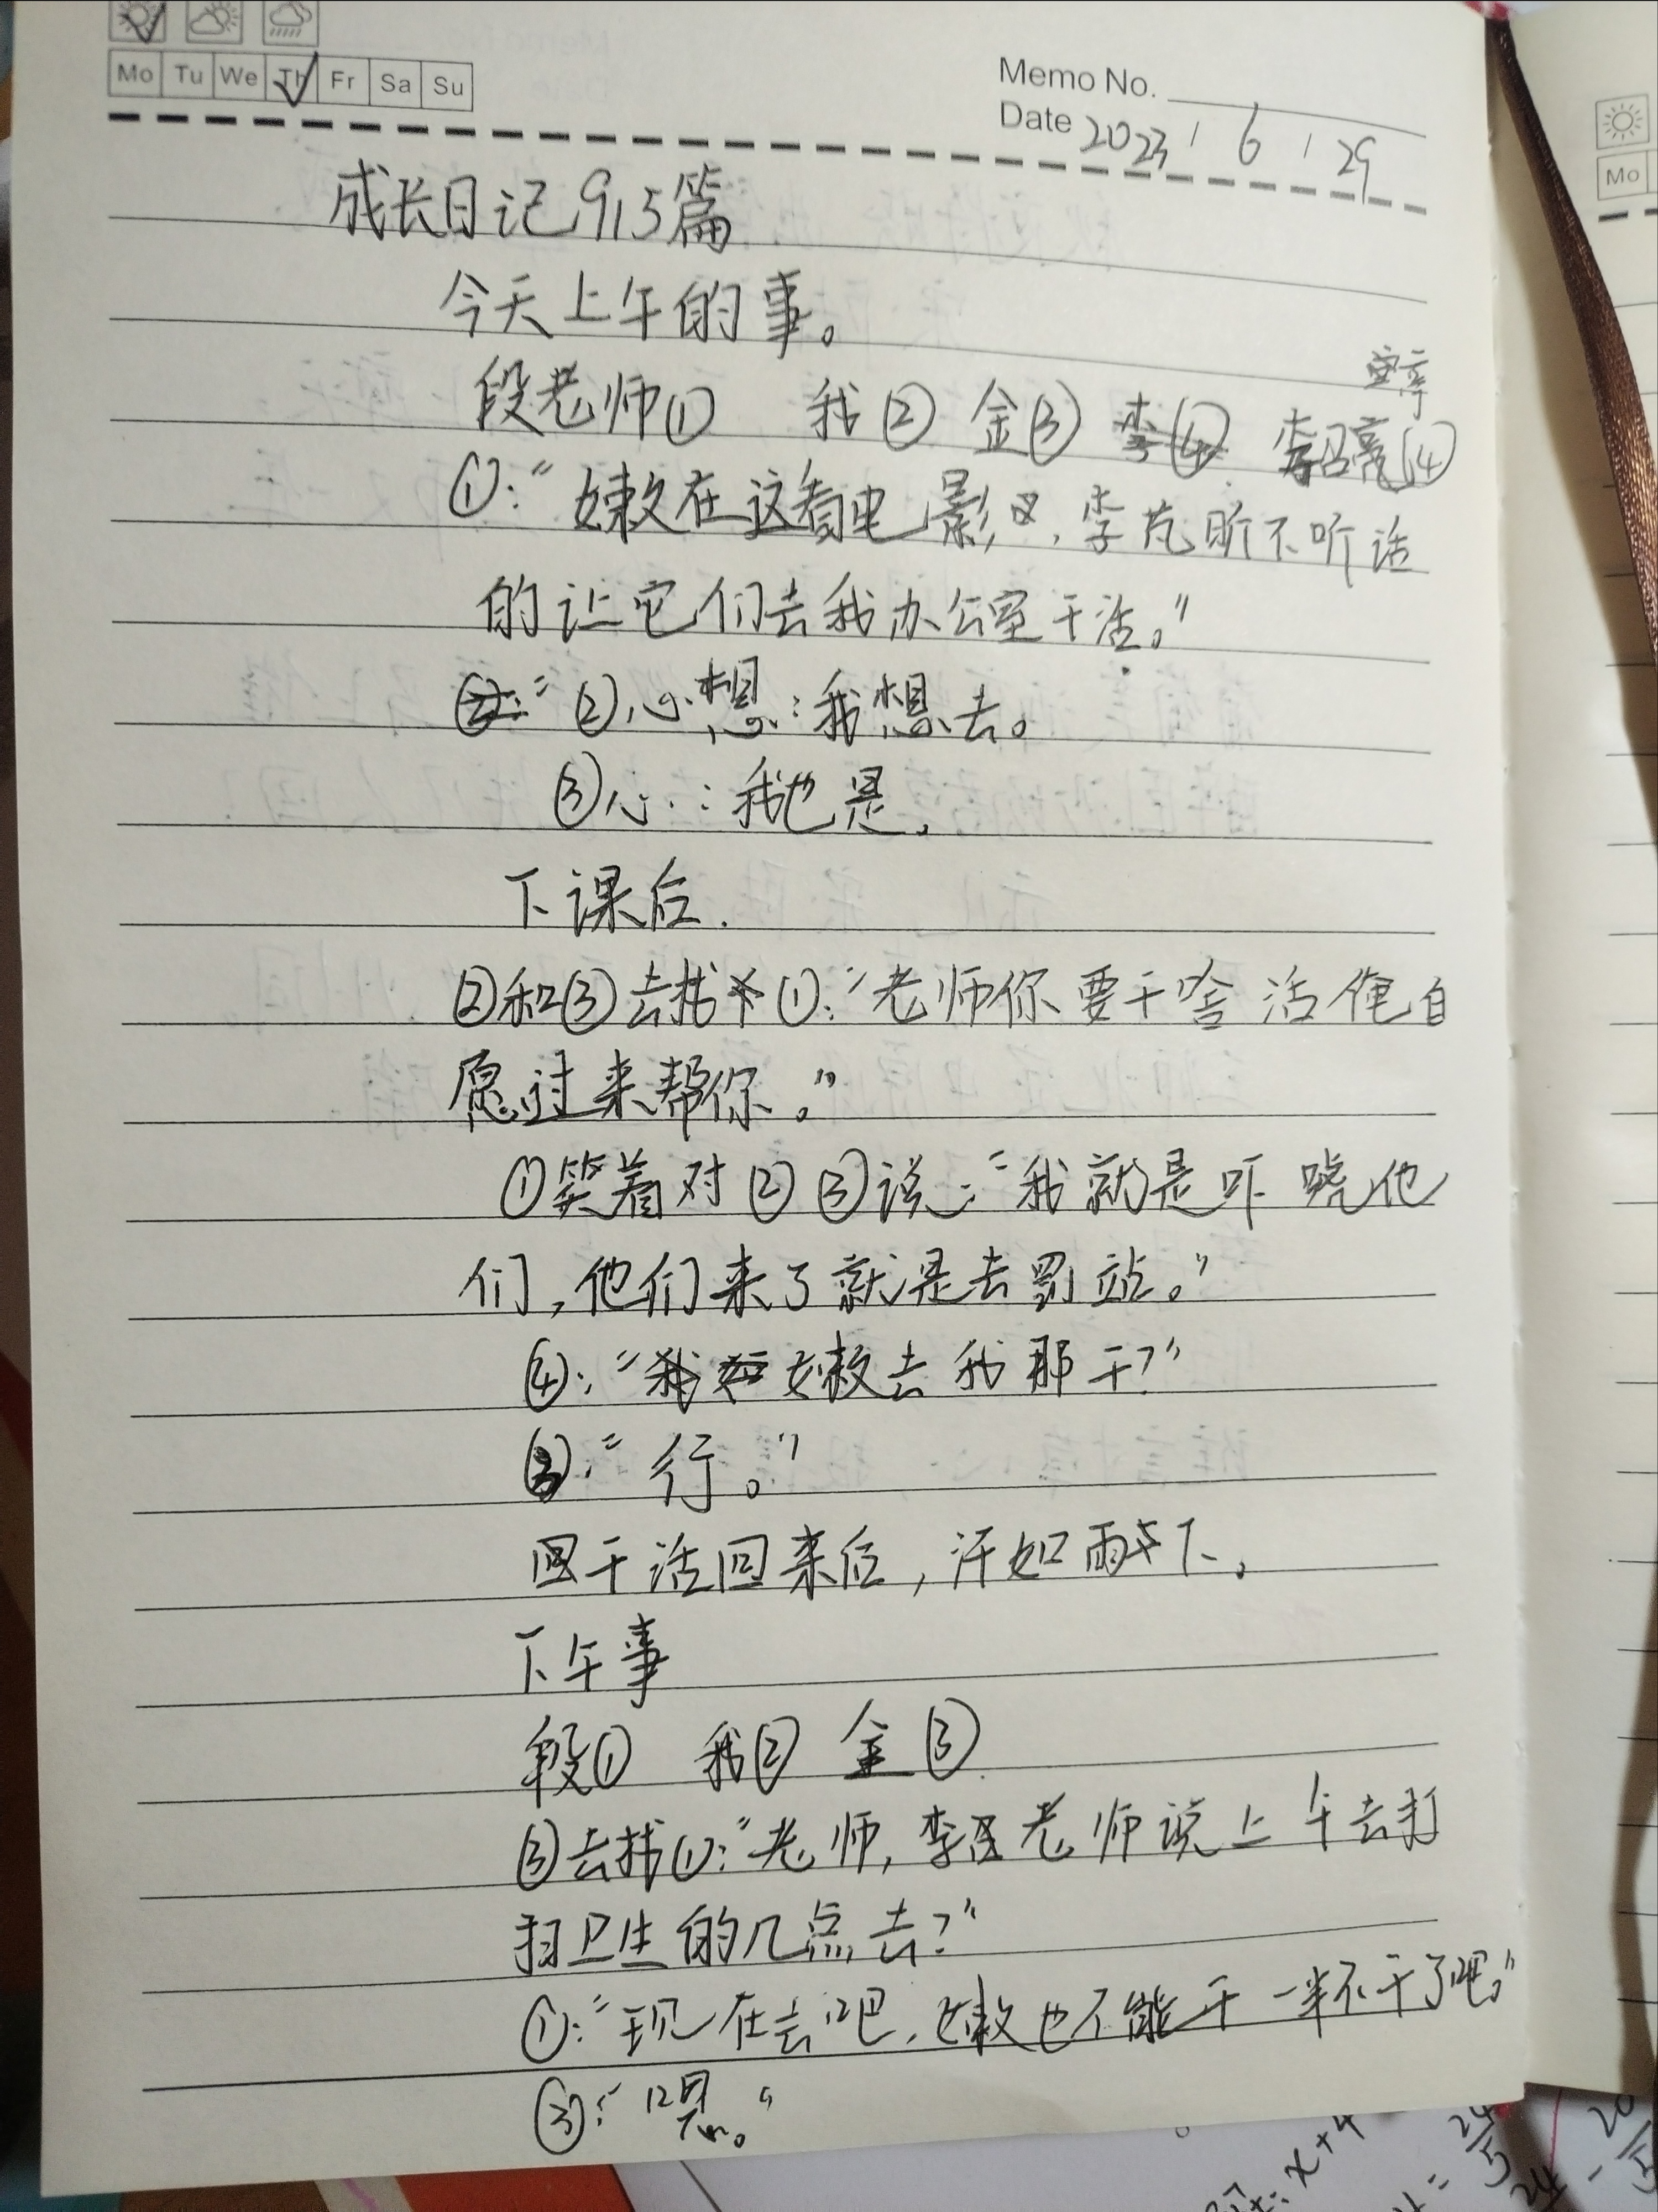 Mo Tu We Th Fr Sa Su
Memo No.
Date 2023 / 6 / 29
成长日记915篇
今天上午的事。
段老师① 我② 金③ 李④ 李召亮④
①:“嫩在这看电影,李芃昕不听话
的让它们去我办公室干活。”
②:“②心想:我想去。
③心:我也是。
下课后.
②和③去找①:“老师你要干啥活俺自
愿过来帮你。”
①笑着对②③说:“我就是吓唬他
们,他们来了就是去罚站。”
④:“我 嫩去我那干?”
③:“行。”
干活回来后,汗如雨下。
下午事
段① 我② 金③
③去找①:“老师,李召老师说上午去打
扫卫生的几点去?”
①:“现在去吧,嫩也不能干一半不干了吧。”
③:“嗯。”
Mo
x+4
24
5